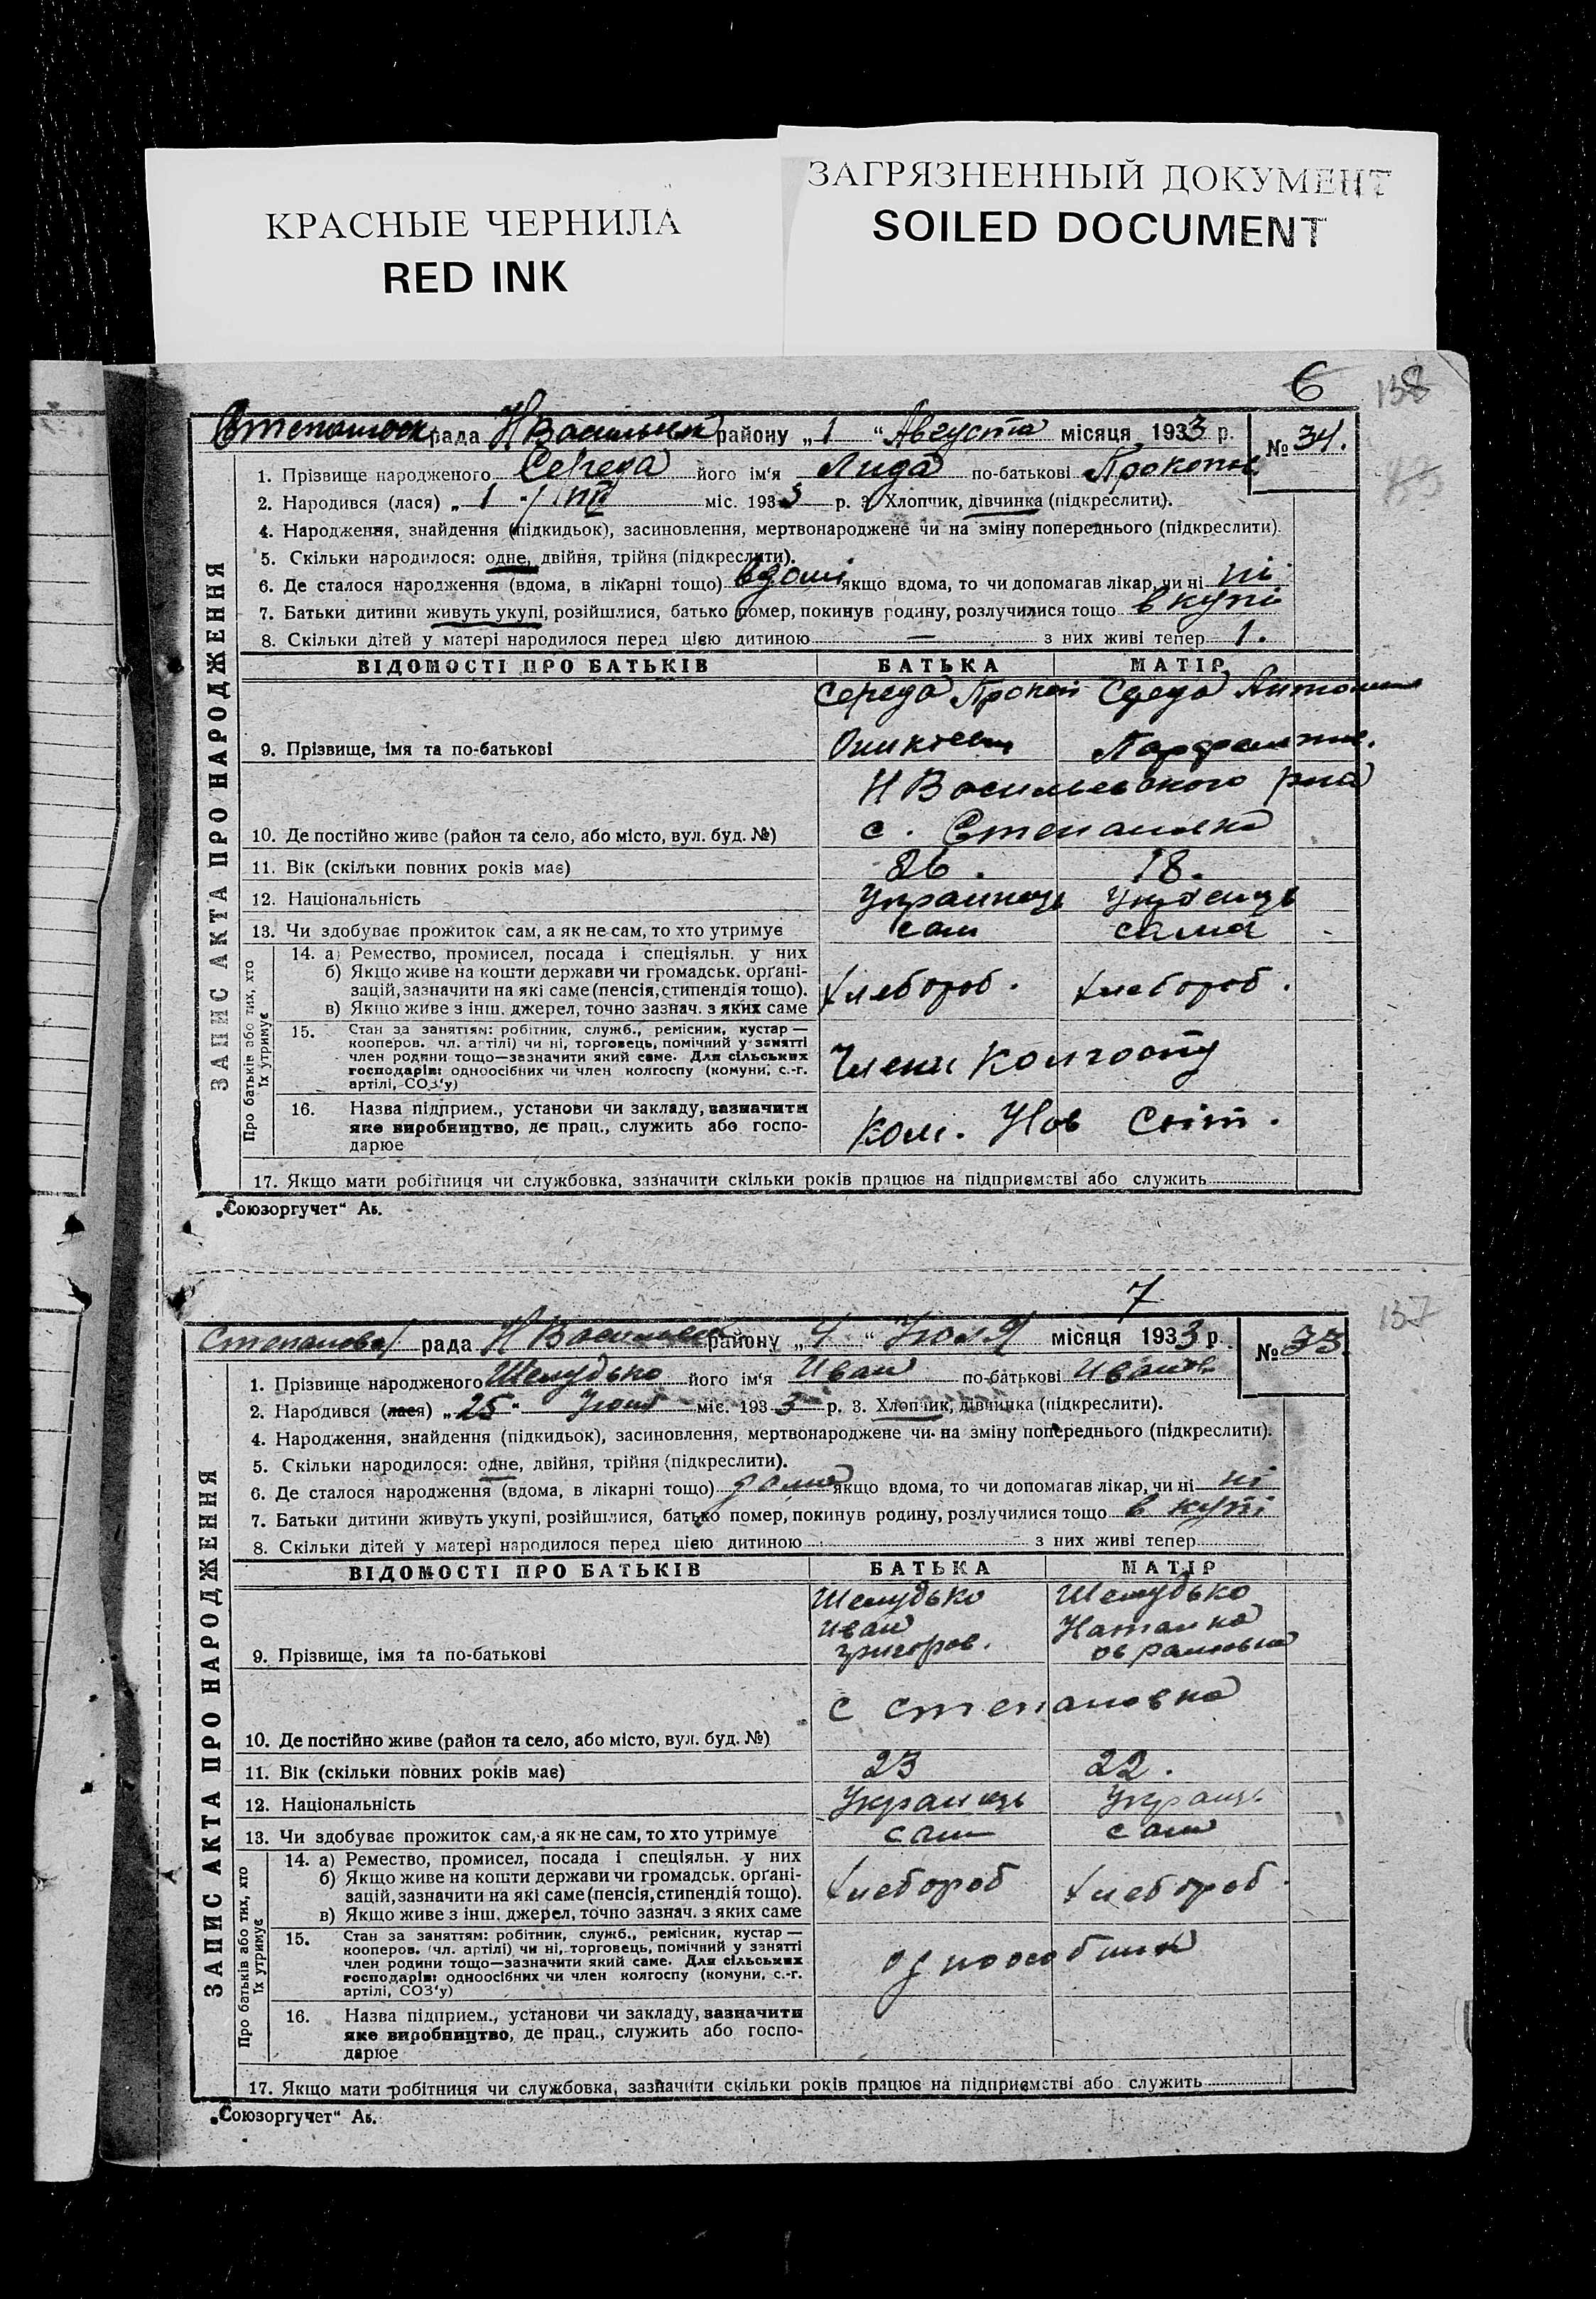 КРАСНЫЕ ЧЕРНИЛА
RED INK
ЗАГРЯЗНЕННЫЙ ДОКУМЕНТ
SOILED DOCUMENT
6 138
рада району „ 1 “ Августа місяця 1933 р. № 34.
1. Прізвище народженого Середа його ім'я Лида по-батькові
2. Народився (лася) „ 1 “ міс. 193 р. 3. Хлопчик, дівчинка (підкреслити).
4. Народження, знайдення (підкидьок), засиновлення, мертвонароджене чи на зміну попереднього (підкреслити).
5. Скільки народилося: одне, двійня, трійня (підкреслити).
6. Де сталося народження (вдома, в лікарні тощо) вдомі якщо вдома, то чи допомагав лікар, чи ні ні
7. Батьки дитини живуть укупі, розійшлися, батько помер, покинув родину, розлучилися тощо в купі
8. Скільки дітей у матері народилося перед цією дитиною — з них живі тепер 1.
ВІДОМОСТІ ПРО БАТЬКІВ БАТЬКА МАТІР
Середа Середа
9. Прізвище, імя та по-батькові
Н Васильевского
10. Де постійно живе (район та село, або місто, вул. буд. №) с. Степановка
11. Вік (скільки повних років має) 26. 18.
12. Національність
13. Чи здобуває прожиток сам, а як не сам, то хто утримує сам сама
14. а) Ремество, промисел, посада і спеціяльн. у них
б) Якщо живе на кошти держави чи громадськ. орґані-
зацій, зазначити на які саме (пенсія, стипендія тощо). хлебороб. хлебороб.
в) Якщо живе з інш. джерел, точно зазнач. з яких саме
15. Стан за заняттям: робітник, служб., ремісник, кустар —
кооперов. чл. артілі) чи ні, торговець, помічний у занятті
член родини тощо—зазначити який саме. Для сільських
господарів: одноосібних чи член колгоспу (комуни, с.-г.
артілі, СОЗ'у)
Члени колгоспу
16. Назва підприєм., установи чи закладу, зазначити
яке виробництво, де прац., служить або госпо-
дарює
Нов
17. Якщо мати робітниця чи службовка, зазначити скільки років працює на підприємстві або служить
ЗАПИС АКТА ПРО НАРОДЖЕННЯ
Про батьків або тих, хто
їх утримує
„Союзоргучет“ Аб.
7 137
рада району „ 4 “ місяця 1933 р. № 33.
1. Прізвище народженого Шелудько його ім'я Иван по-батькові Иванов
2. Народився (лася) „ 25 “ міс. 1933 р. 3. Хлопчик, дівчинка (підкреслити).
4. Народження, знайдення (підкидьок), засиновлення, мертвонароджене чи на зміну попереднього (підкреслити).
5. Скільки народилося: одне, двійня, трійня (підкреслити).
6. Де сталося народження (вдома, в лікарні тощо) дома якщо вдома, то чи допомагав лікар, чи ні ні
7. Батьки дитини живуть укупі, розійшлися, батько помер, покинув родину, розлучилися тощо в купі
8. Скільки дітей у матері народилося перед цією дитиною з них живі тепер
ВІДОМОСТІ ПРО БАТЬКІВ БАТЬКА МАТІР
Шелудько Шелудько
Иван Наталка
9. Прізвище, імя та по-батькові григоров.
с степановка
10. Де постійно живе (район та село, або місто, вул. буд. №)
11. Вік (скільки повних років має) 23 22.
12. Національність
13. Чи здобуває прожиток сам, а як не сам, то хто утримує сам сам
14. а) Ремество, промисел, посада і спеціяльн. у них
б) Якщо живе на кошти держави чи громадськ. орґані-
зацій, зазначити на які саме (пенсія, стипендія тощо). хлебороб хлебороб.
в) Якщо живе з інш. джерел, точно зазнач. з яких саме
15. Стан за заняттям: робітник, служб., ремісник, кустар —
кооперов. (чл. артілі) чи ні, торговець, помічний у занятті
член родини тощо—зазначити який саме. Для сільських
господарів: одноосібних чи член колгоспу (комуни, с.-г.
артілі, СОЗ'у)
одноособник
16. Назва підприєм., установи чи закладу, зазначити
яке виробництво, де прац., служить або госпо-
дарює
17. Якщо мати робітниця чи службовка, зазначити скільки років працює на підприємстві або служить
ЗАПИС АКТА ПРО НАРОДЖЕННЯ
Про батьків або тих, хто
їх утримує
„Союзоргучет“ Аб.